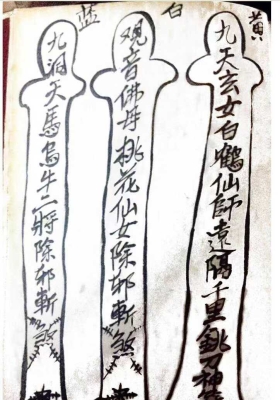 黄
九天玄女白鶴仙師遠隔千里刀神
白
观音佛母桃花仙女除邪斬煞
蓝
九洞天馬烏牛二將除邪斬煞